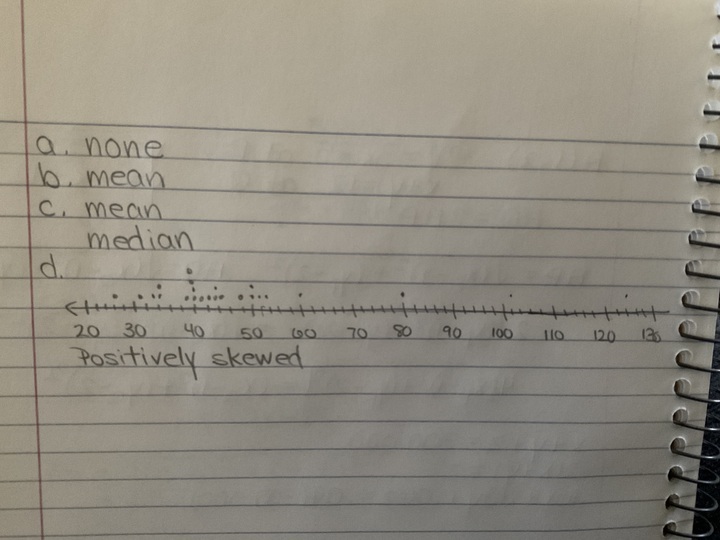 a. none
b. mean
c. mean
median
d.
20 30 40 50 60 70 80 90 100 110 120 130
Positively skewed